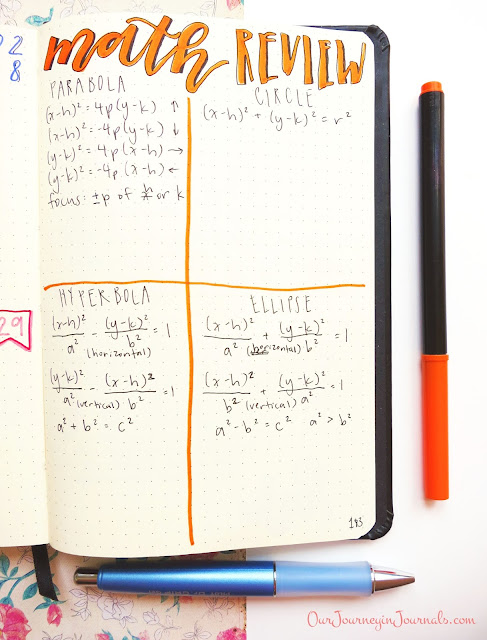 math REVIEW
PARABOLA
(x-h)² = 4p(y-k) ↑
(x-h)² = -4p(y-k) ↓
(y-k)² = 4p(x-h) →
(y-k)² = -4p(x-h) ←
focus: ±p of h or k
CIRCLE
(x-h)² + (y-k)² = r²
HYPERBOLA
(x-h)²/a² - (y-k)²/b² = 1
(horizontal)
(y-k)²/a² - (x-h)²/b² = 1
(vertical)
a² + b² = c²
ELLIPSE
(x-h)²/a² + (y-k)²/b² = 1
(horizontal)
(x-h)²/b² + (y-k)²/a² = 1
(vertical)
a² - b² = c² a² > b²
183
2
8
29
OurJourneyinJournals.com